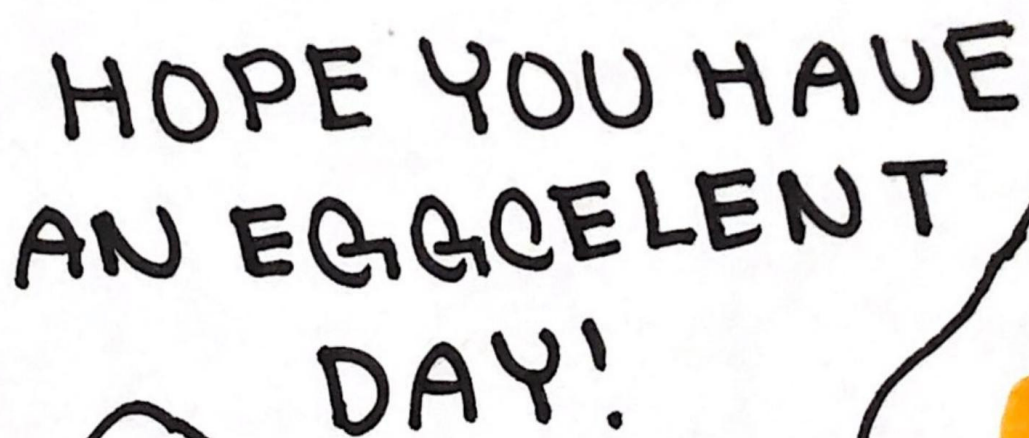 HOPE YOU HAVE
AN EGGCELENT
DAY!